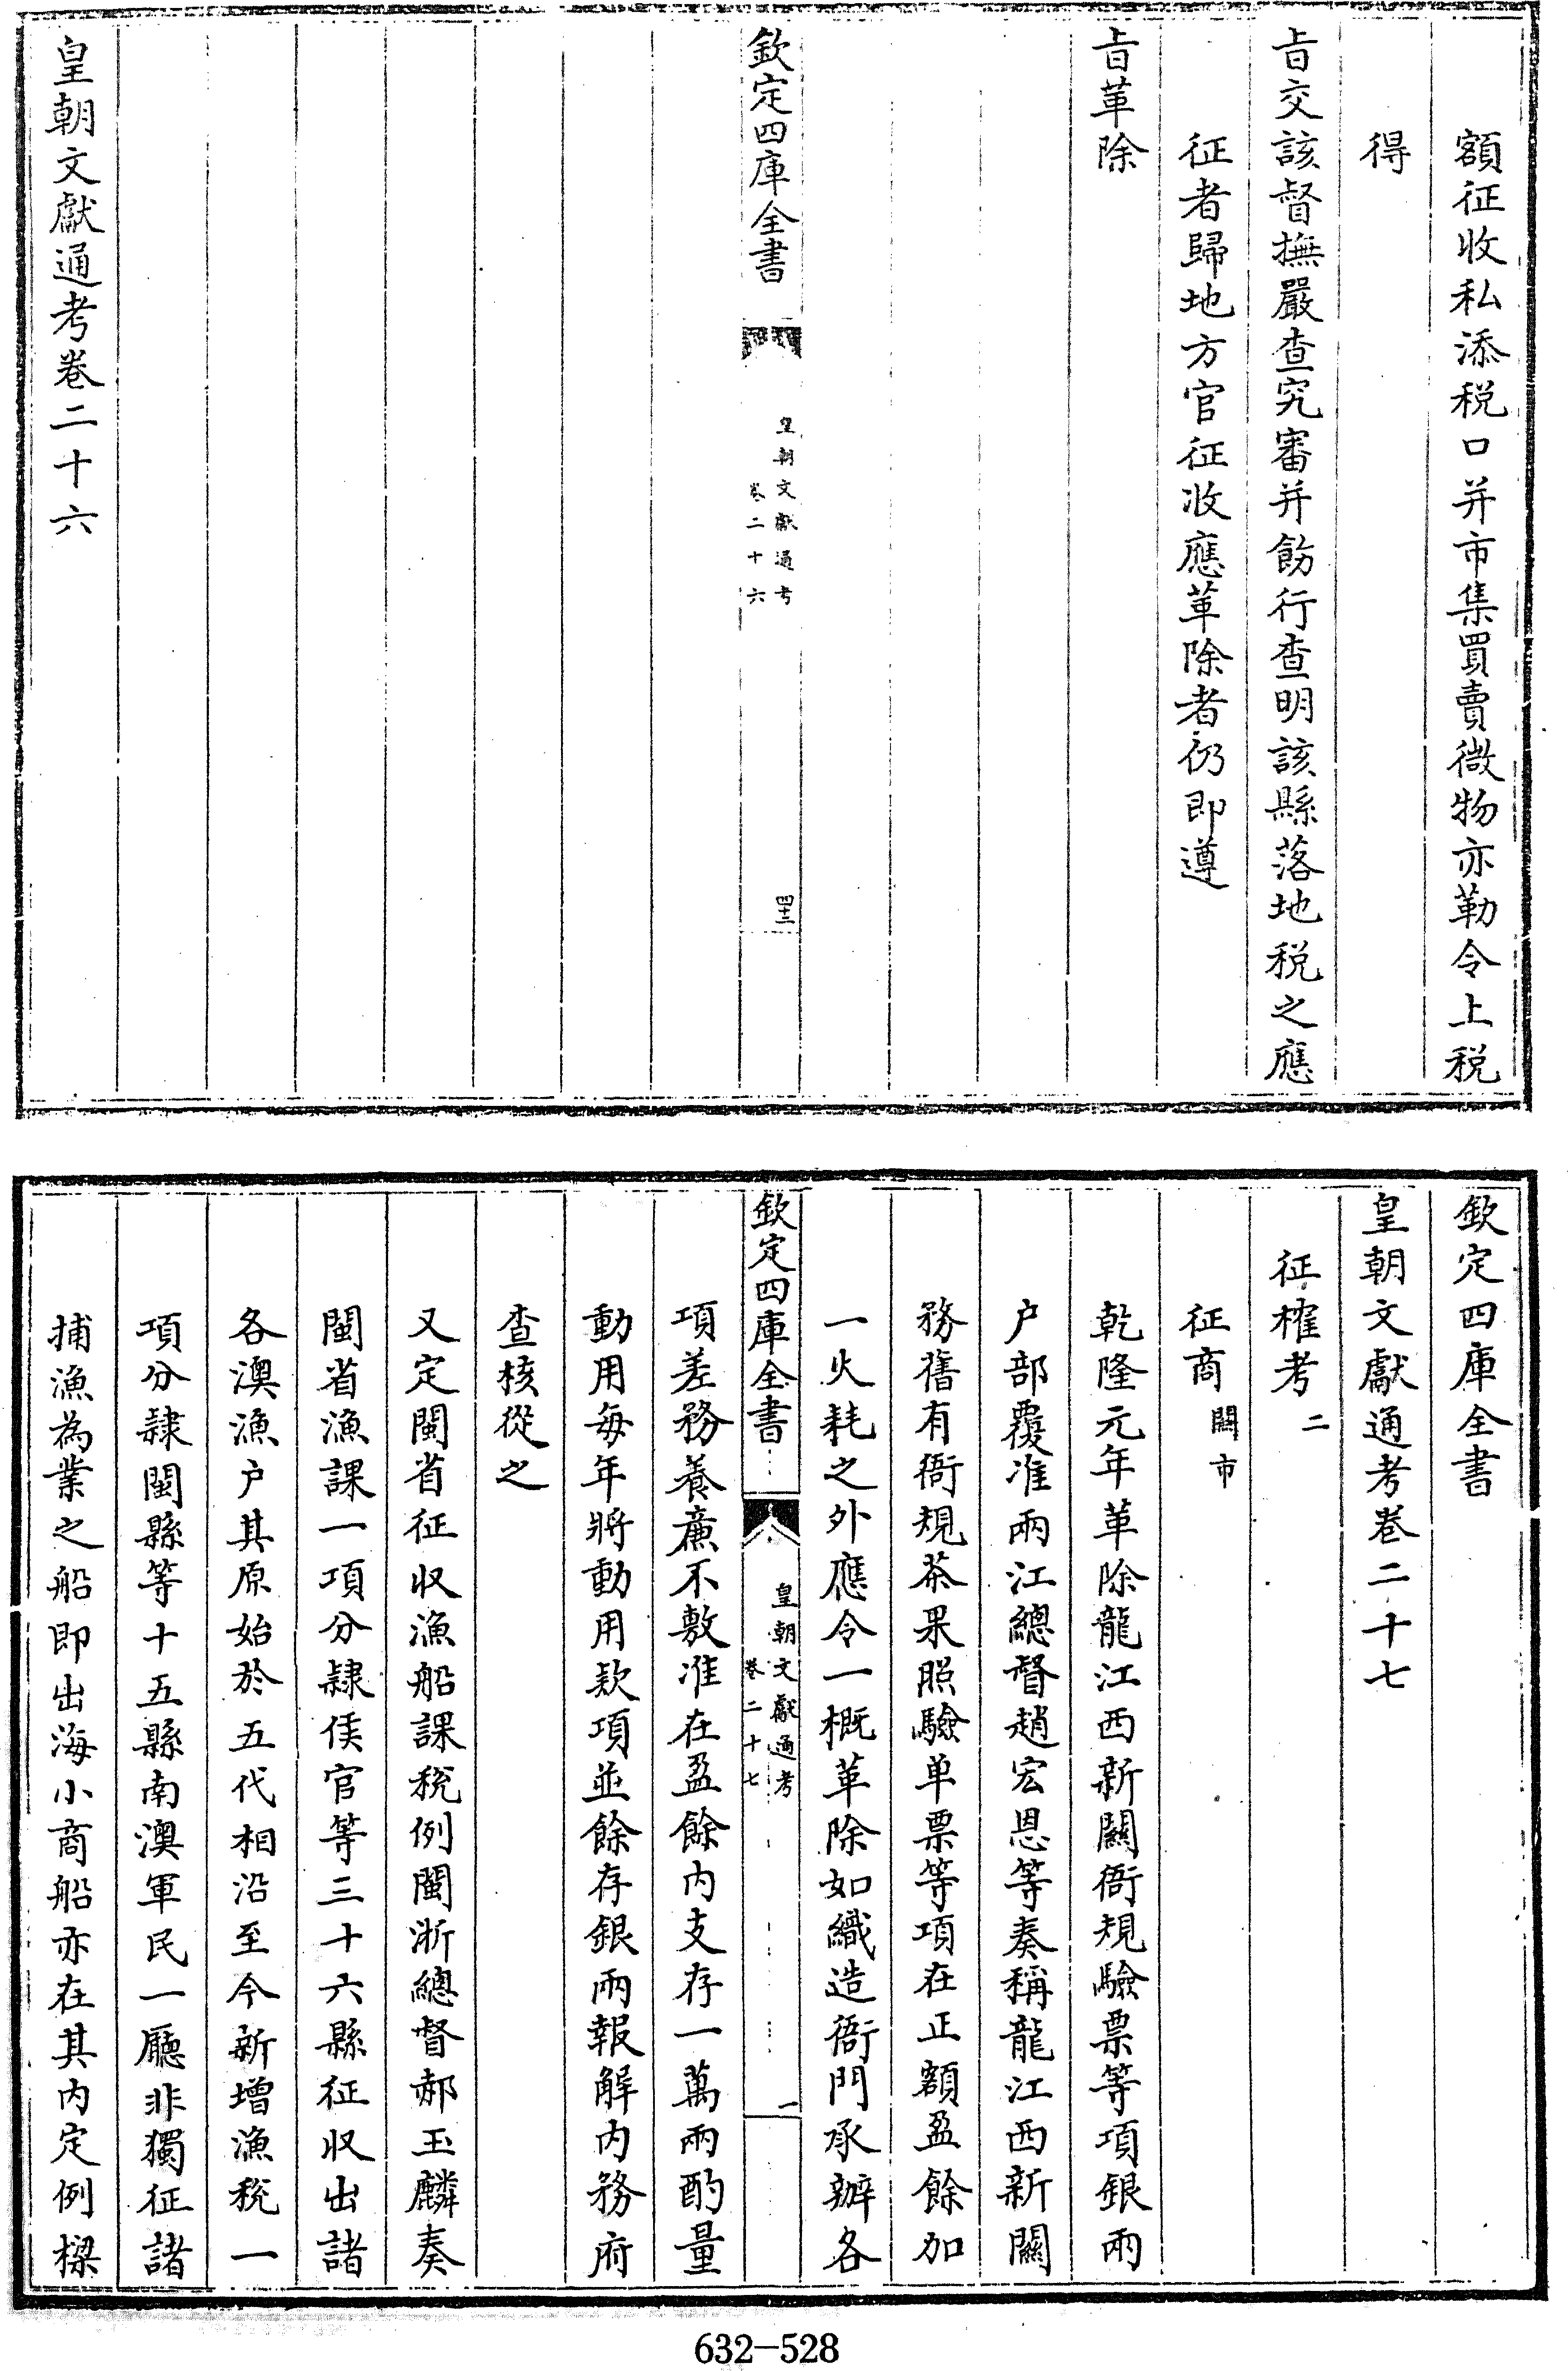 額征收私添税口并市集買賣微物亦勒令上税
得
旨交該督撫嚴查究審并飭行查明該縣落地税之應
征者歸地方官征收應革除者仍即遵
旨革除
欽定四庫全書
皇朝文獻通考
卷二十六
四十三
皇朝文獻通考卷二十六
欽定四庫全書
皇朝文獻通考卷二十七
征榷考二
征商關市
乾隆元年革除龍江西新關衙規驗票等項銀兩
户部覆准兩江總督趙宏恩等奏稱龍江西新關
務舊有衙規茶果照驗单票等項在正額盈餘加
一火耗之外應令一概革除如織造衙門承辦各
欽定四庫全書
皇朝文獻通考
卷二十七
一
項差務養廉不敷准在盈餘内支存一萬兩酌量
動用每年將動用款項並餘存銀兩報解内務府
查核從之
又定閩省征收漁船課税例閩浙總督郝玉麟奏
閩省漁課一項分隸侯官等三十六縣征收出諸
各澳漁户其原始於五代相沿至今新增漁税一
項分隸閩縣等十五縣南澳軍民一廳非獨征諸
捕漁為業之船即出海小商船亦在其内定例樑
632-528